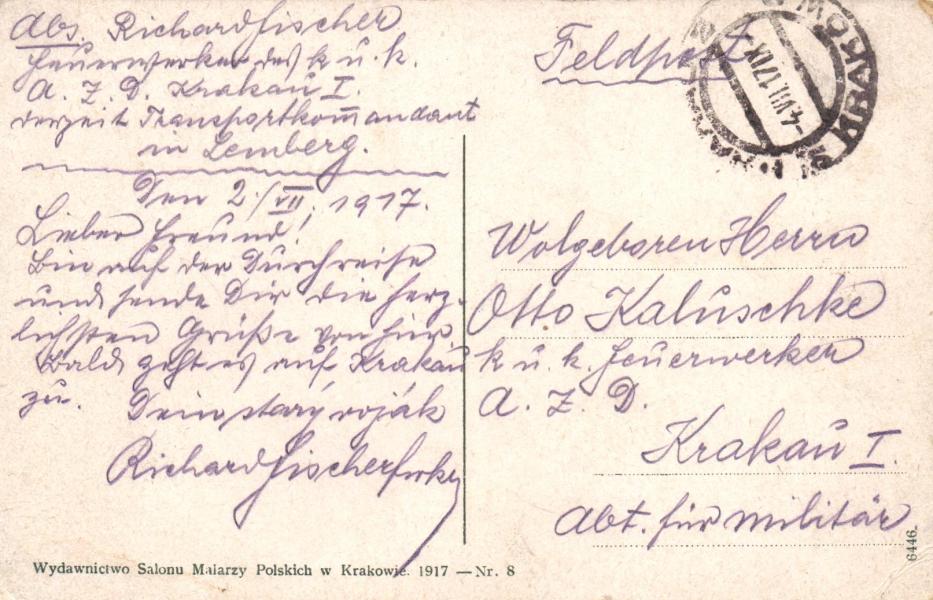 Abs. Richard Fischer
Feuerwerker des k. u. k.
A. Z. D. Krakau I.
derzeit Transportkom̅andant
in Lemberg.
Den 2./VII. 1917.
Lieber Freund!
Bin auf der Durchreise
und sende Dir die herz-
lichsten Grüße von hier
Bald geht es auf Krakau
zu. Dein starý voják
Richard Fischer fwkr
Feldpost
KRAKÓ
Wolgeboren Herrn
Otto Kaluschke
k. u. k. Feuerwerker
A. Z. D.
Krakau I.
Abt. für Militär
Wydawnictwo Salonu Malarzy Polskich w Krakowie. 1917 — Nr. 8
6446.